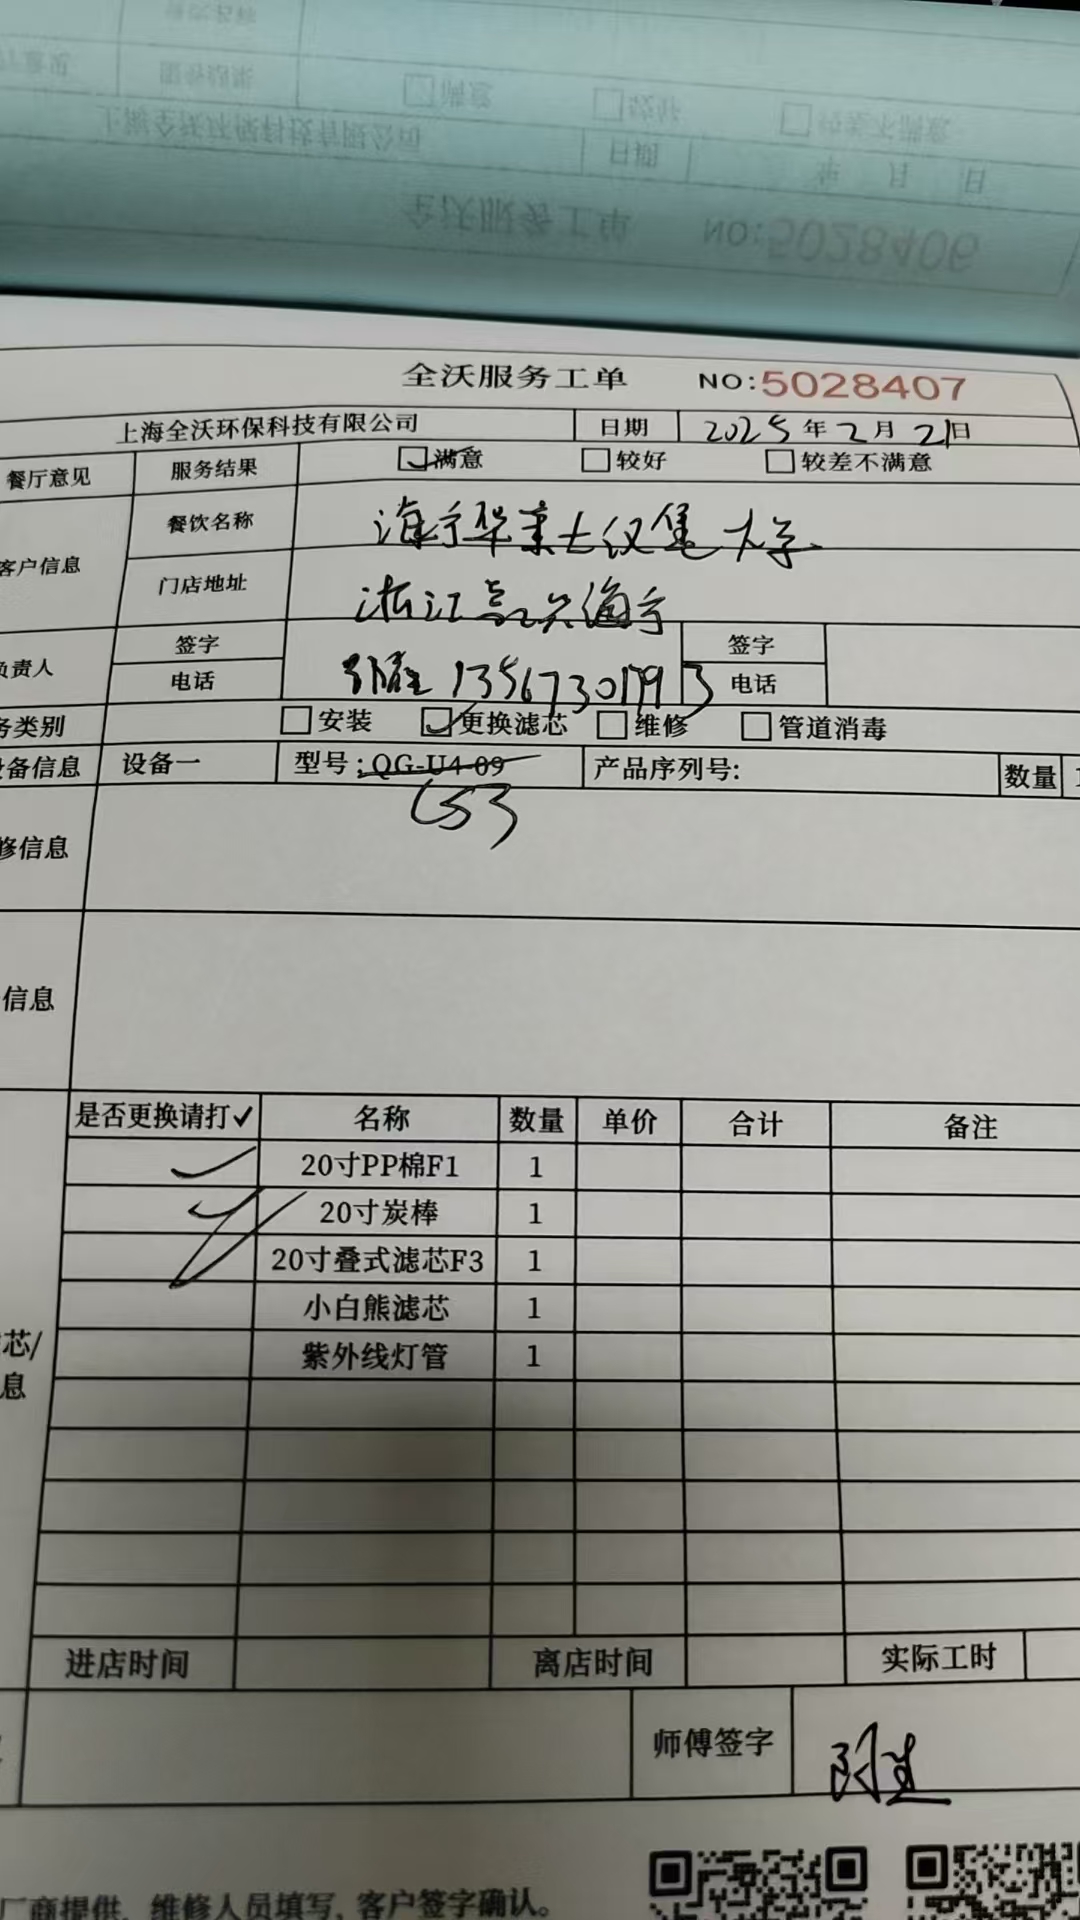 全沃服务工单 NO:5028406
全沃服务工单 NO:5028407
上海全沃环保科技有限公司 日期 2025年2月21日
餐厅意见 服务结果 满意 较好 较差不满意
客户信息 餐饮名称 海宁华莱士汉堡大学
门店地址 浙江嘉兴海宁
负责人 签字 签字
电话 电话
务类别 安装 更换滤芯 维修 管道消毒
设备信息 设备一 型号:QG-U4-09 产品序列号: 数量
修信息
信息
是否更换请打✓ 名称 数量 单价 合计 备注
✓ 20寸PP棉F1 1
✓ 20寸炭棒 1
✓ 20寸叠式滤芯F3 1
小白熊滤芯 1
紫外线灯管 1
芯/
息
进店时间 离店时间 实际工时
师傅签字
厂商提供, 维修人员填写, 客户签字确认。